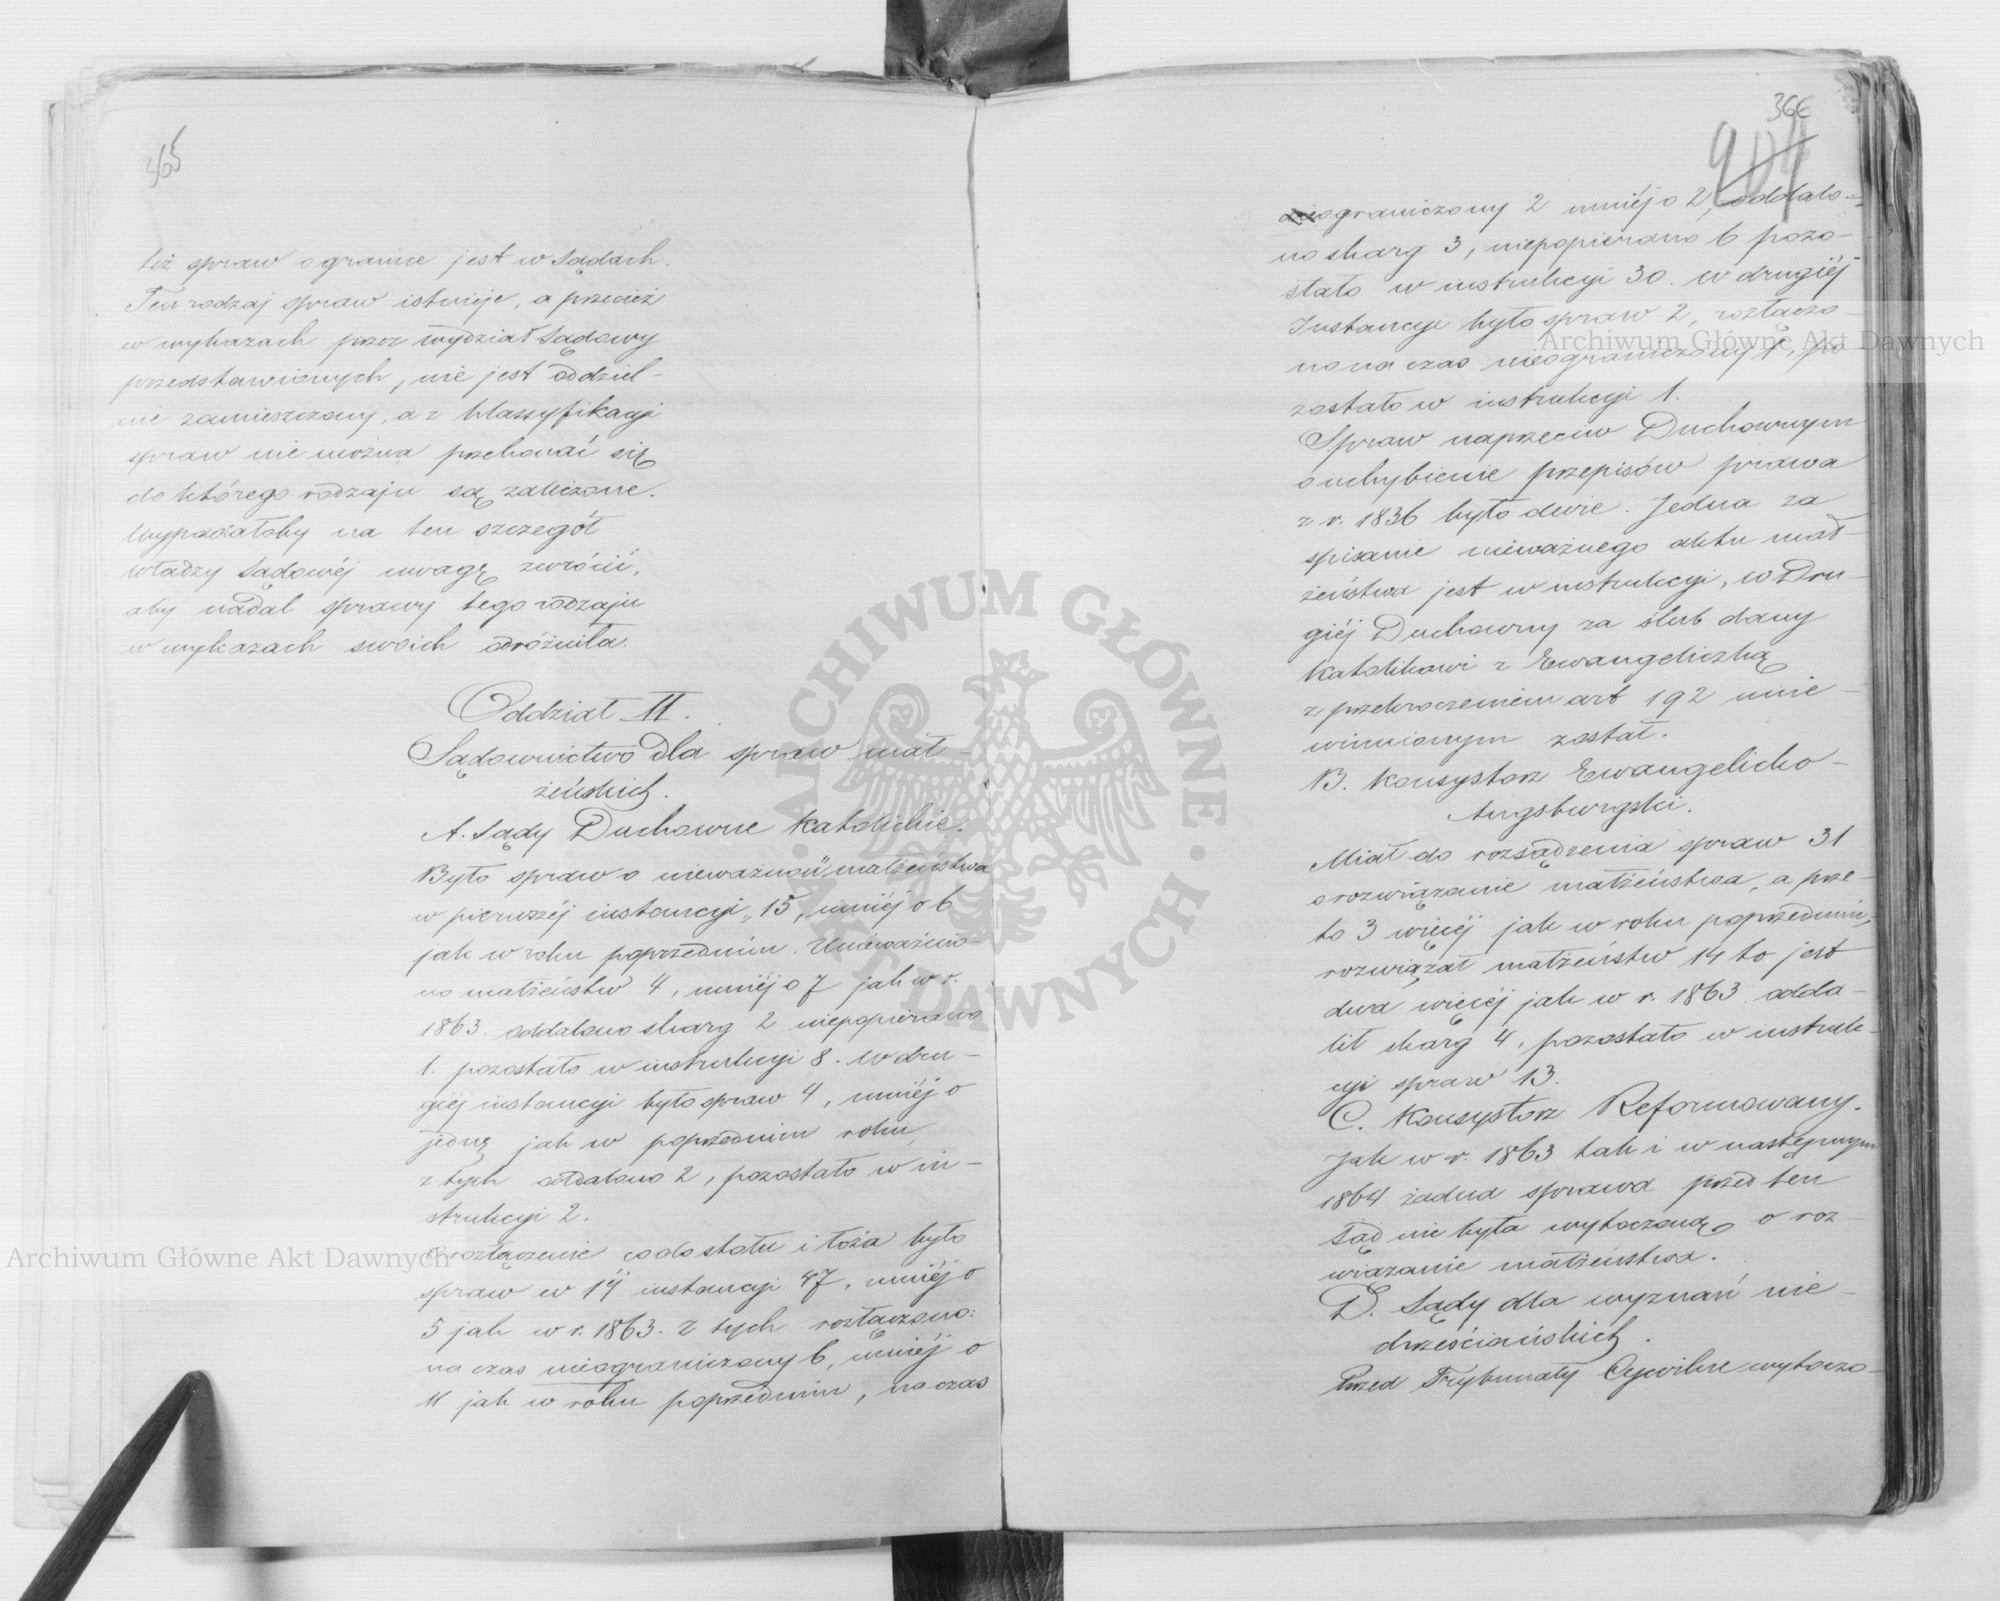 365
też spraw o granice jest w Sądach.
Ten rodzaj spraw istnieje, a przecież
w wykazach przez wydział Sądowy
przedstawionych, nie jest oddziel-
nie zamieszczony, a z klassyfikacji
spraw nie można przekonać się
do którego rodzaju są zaliczone.
Wypadałoby na ten szczegół
władzy Sądowéj uwagę zwrócić,
aby nadal sprawy tego rodzaju
w wykazach swoich odróżniła.
Oddział II.
Sądownictwo dla spraw mał-
żeńskich.
A. Sądy Duchowne Katolickie.
Było spraw o nieważność małżeństwa
w pierwszéj instancyi 15, mniéj o 6
jak w roku poprzednim. Unieważnio-
no małżeństw 4, mniéj o 7 jak w r.
1863. oddalono skarg 2 niepopierano
1. pozostało w instrukcyi 8. W dru-
giéj instancyi było spraw 4, mniéj o
jednę jak w poprzednim roku,
z tych oddalono 2, pozostało w in-
strukcyi 2.
O rozłączenie co do stołu i łoża było
spraw w 1éj instancyi 47, mniéj o
5 jak w r. 1863. z tych rozłączono:
na czas nieograniczony 6, mniéj o
11 jak w roku poprzednim, na czas
366
204
ograniczony 2 mniéj o 2, oddalo-
no skarg 3, niepopierano 6 pozo-
stało w instrukcyi 30. w drugiéj
Instancyi było spraw 2, rozłączo-
no na czas nieograniczony 1, po
zostało w instrukcyi 1.
Spraw naprzeciw Duchownym
o uchybienie przepisów prawa
z r. 1836 było dwie. Jedna za
spisanie nieważnego aktu mał-
żeństwa jest w instrukcyi, w Dru-
giéj Duchowny za ślub dany
Katolikowi z Ewangeliczką
z przekroczeniem art 192 unie-
winnionym został.
B. Konsystorz Ewangelicko-
Augsburgski.
Miał do rozsądzenia spraw 31
o rozwiązanie małżeństwa, a prze-
to 3 więcéj jak w roku poprzednim,
rozwiązał małżeństw 14 to jest
dwa więcéj jak w r. 1863. odda-
lił skarg 4, pozostało w instruk-
cyi spraw 13.
C. Konsystorz Reformowany.
Jak w r. 1863 tak i w następnym
1864 żadna sprawa przed ten
Sąd nie była wytoczoną o roz-
wiązanie małżeństwa.
D. Sądy dla wyznań nie-
chrześciańskich.
Przed Trybunały Cywilne wytoczo-
Archiwum Główne Akt Dawnych
Archiwum Główne Akt Dawnych
ARCHIWUM GŁÓWNE AKT DAWNYCH